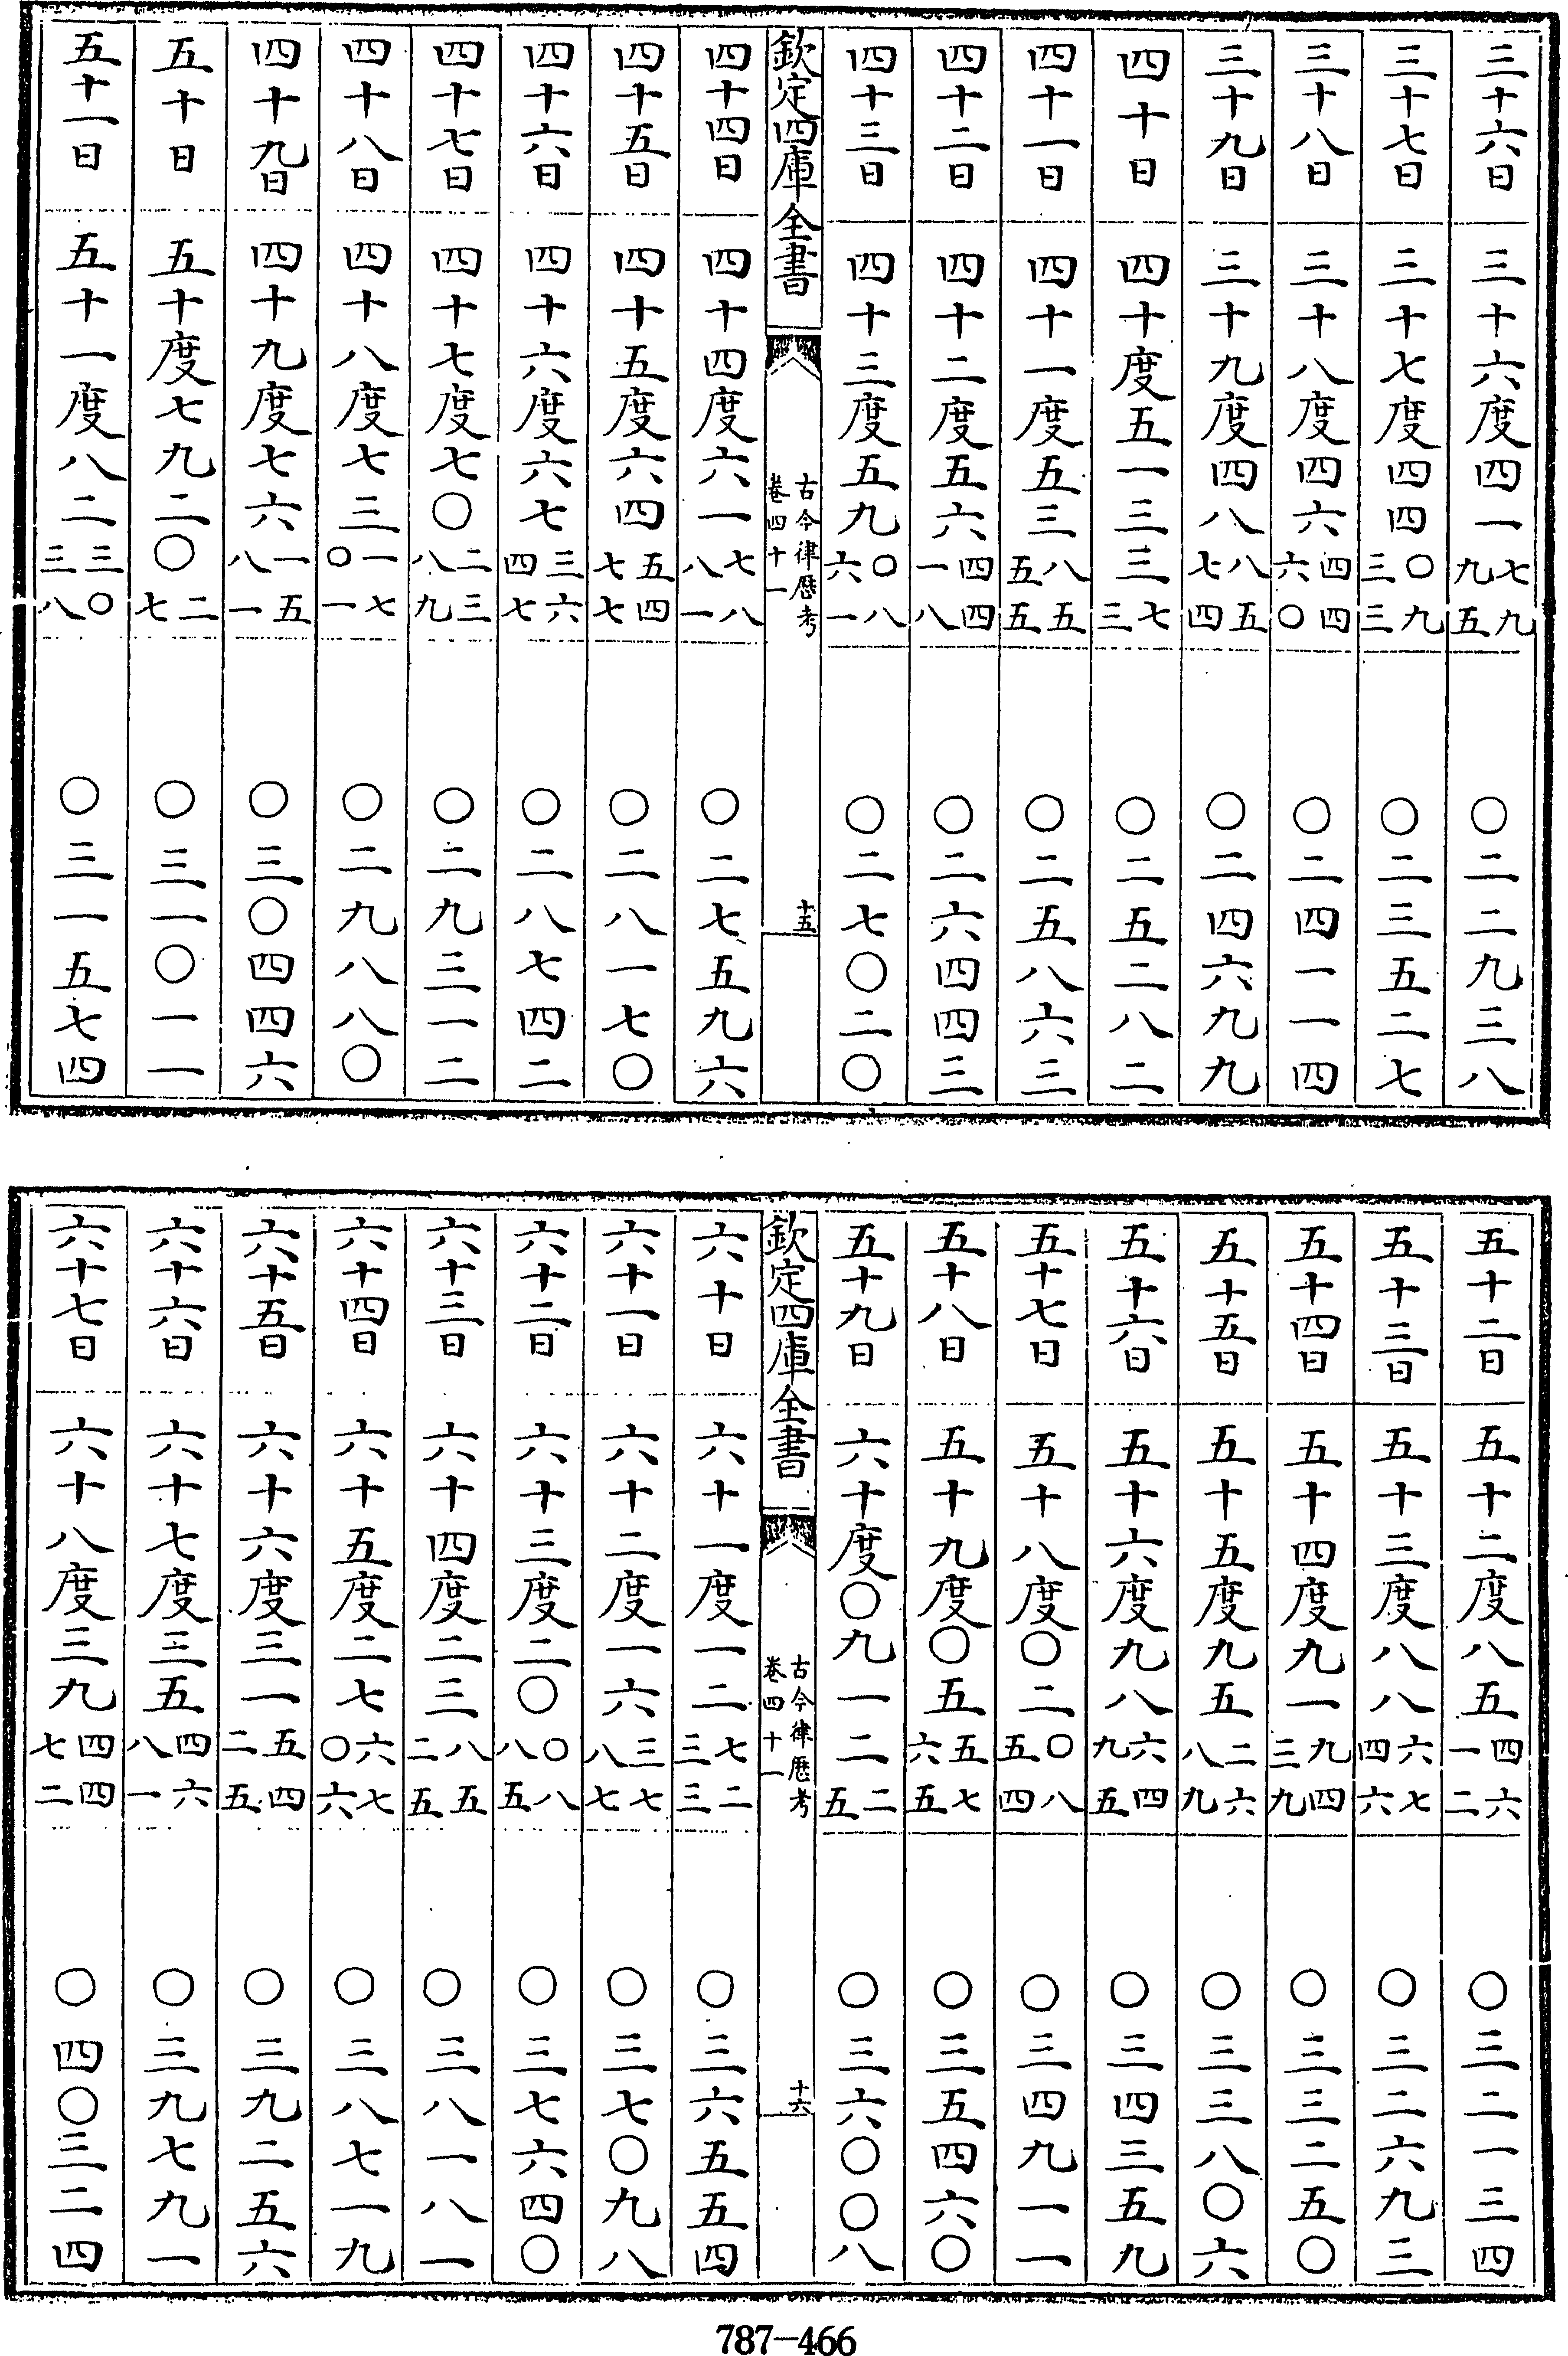 三十六日 三十六度四一七九九五 〇二二九三八
三十七日 三十七度四四〇九三三 〇二三五二七
三十八日 三十八度四六四四六〇 〇二四一一四
三十九日 三十九度四八八五七四 〇二四六九九
四十日 四十度五一三三七三 〇二五二八二
四十一日 四十一度五三八五五五 〇二五八六三
四十二日 四十二度五六四四一八 〇二六四四三
四十三日 四十三度五九〇八六一 〇二七〇二〇
欽定四庫全書 古今律歷考 卷四十一 十五
四十四日 四十四度六一七八八一 〇二七五九六
四十五日 四十五度六四五四七七 〇二八一七〇
四十六日 四十六度六七三六四七 〇二八七四二
四十七日 四十七度七〇二三八九 〇二九三一二
四十八日 四十八度七三一七〇一 〇二九八八〇
四十九日 四十九度七六一五八一 〇三〇四四六
五十日 五十度七九二〇二七 〇三一〇一一
五十一日 五十一度八二三〇三八 〇三一五七四
五十二日 五十二度八五四六一二 〇三二一三四
五十三日 五十三度八八六七四六 〇三二六九三
五十四日 五十四度九一九四三九 〇三三二五〇
五十五日 五十五度九五二六八九 〇三三八〇六
五十六日 五十六度九八六四九五 〇三四三五九
五十七日 五十八度〇二〇八五四 〇三四九一一
五十八日 五十九度〇五五七六五 〇三五四六〇
五十九日 六十度〇九一二二五 〇三六〇〇八
欽定四庫全書 古今律歷考 卷四十一 十六
六十日 六十一度一二七二三三 〇三六五五四
六十一日 六十二度一六三七八七 〇三七〇九八
六十二日 六十三度二〇〇八八五 〇三七六四〇
六十三日 六十四度二三八五二五 〇三八一八一
六十四日 六十五度二七六七〇六 〇三八七一九
六十五日 六十六度三一五四二五 〇三九二五六
六十六日 六十七度三五四六八一 〇三九七九一
六十七日 六十八度三九四四七二 〇四〇三二四
787—466